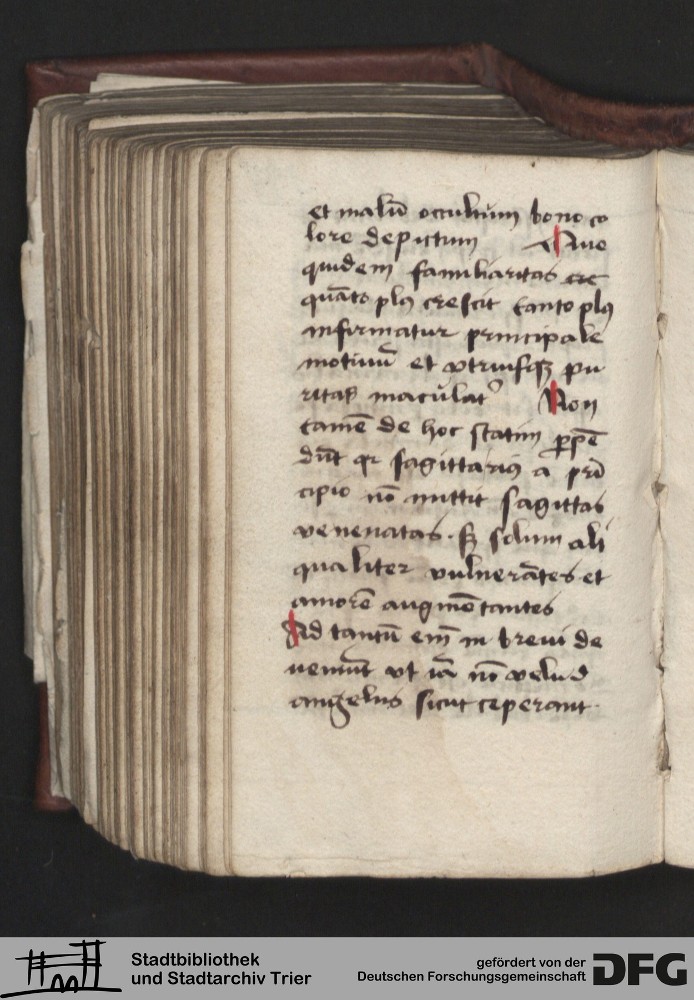 et malū occultum bono co
lore depictum Que
quidem familiaritas
quāto plꝰ crescit tanto plꝰ
infirmatur principale
motiuū et vtriusqꝫ pu
ritas maculatᷣ Non
tamē de hoc statim ꝑpē
dūt qꝛ sagittariꝰ a prī
cipio nō mittit sagittas
venenatas. sꝫ solum ali
qualiter vulnerātes et
amorē augmētantes
Ad tantū em̄ in breui de
ueniūt vt iā nō velud
angelus sicut ceperant.
Stadtbibliothek
und Stadtarchiv Trier
gefördert von der
Deutschen Forschungsgemeinschaft
DFG